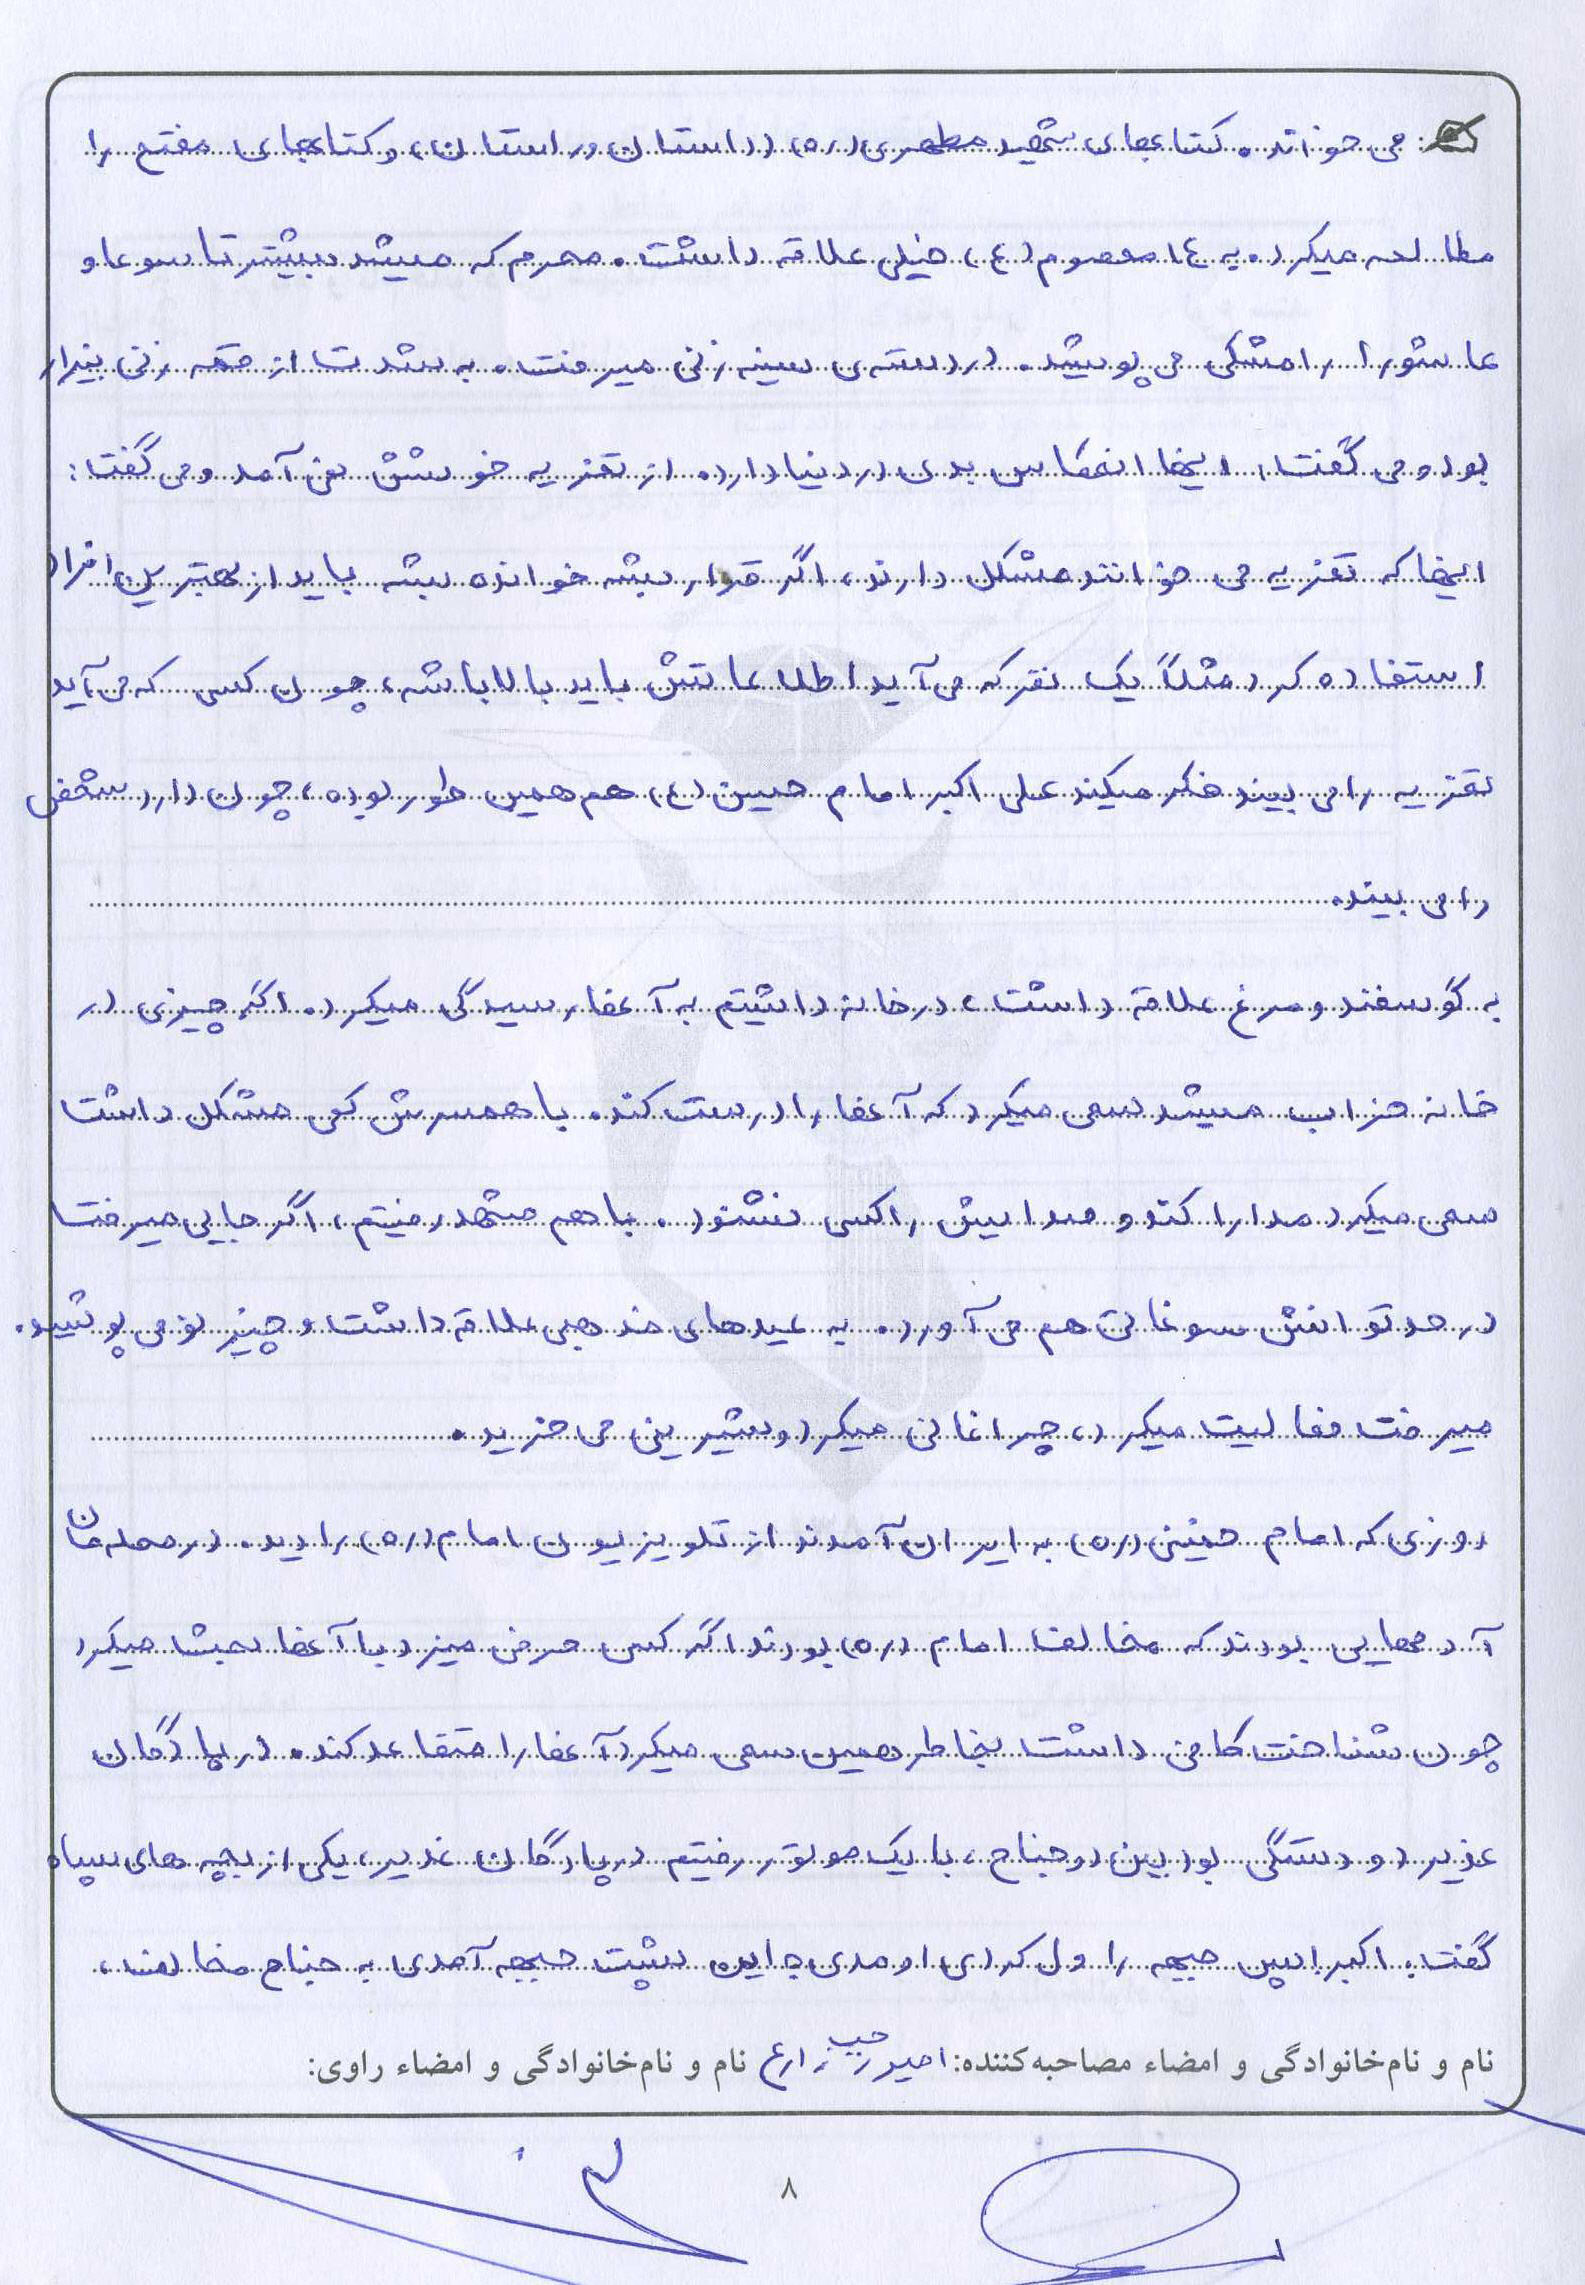 می خواند. کتابهای شهید مطهری (ره) (داستان راستان) و کتابهای مفتح را
مطالعه میکرد. به ۱۴ معصوم (ع) خیلی علاقه داشت. محرم که میشد بیشتر تاسوعا و
عاشورا را مشکی می پوشید. در دسته ی سینه زنی میرفت. به شدت از قمه زنی بیزار
بود و می گفت: اینها انعکاس بدی در دنیا دارد. از تعزیه خوشش نمی آمد و می گفت:
اینها که تعزیه می خوانند مشکل دارند، اگر قرار بشه خوانده بشه باید از بهترین افراد
استفاده کرد مثلاً یک نفر که می آید اطلاعاتش باید بالا باشه، چون کسی که می آید
تعزیه را می بیند فکر میکند علی اکبر امام حسین (ع) هم همین طور بوده، چون دارد شخص
را می بیند.
به گوسفند و مرغ علاقه داشت، در خانه داشتیم به آنها رسیدگی میکرد. اگر چیزی در
خانه خراب میشد سعی میکرد که آنها را درست کند. با همسرش کمی مشکل داشت
سعی میکرد مدارا کند و صدایش را کسی نشنود. با هم مشهد رفتیم، اگر جایی میرفت
در حد توانش سوغاتی هم می آورد. به عیدهای مذهبی علاقه داشت و چیز نو می پوشید.
میرفت فعالیت میکرد، چراغانی میکرد و شیرینی می خرید.
روزی که امام خمینی (ره) به ایران آمدند از تلویزیون امام (ره) را دید. در محله مان
آدمهایی بودند که مخالف امام (ره) بودند اگر کسی حرفی میزد با آنها بحث میکرد
چون شناخت کاملی داشت بخاطر همین سعی میکرد آنها را متقاعد کند. در پادگان
غدیر دو دستگی بود بین دو جناح، با یک موتور رفتیم در پادگان غدیر، یکی از بچه های سپاه
گفت: اکبر اسپن جبهه را ول کردی اومدی پشت جبهه آمدی به جناح مخالف،
نام و نام‌خانوادگی و امضاء مصاحبه‌کننده: امیر رجب زارع نام و نام‌خانوادگی و امضاء راوی:
۸